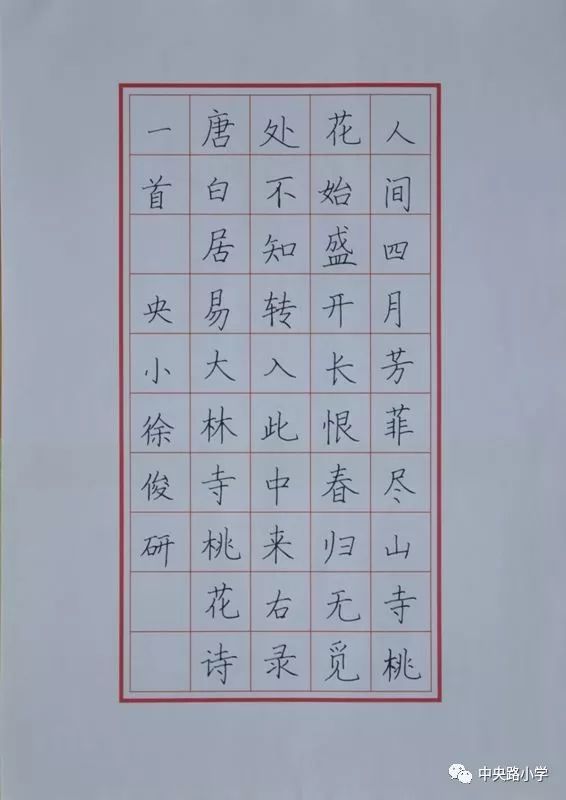 人间四月芳菲尽山寺桃
花始盛开长恨春归无觅
处不知转入此中来右录
唐白居易大林寺桃花诗
一首 央小徐俊研
中央路小学